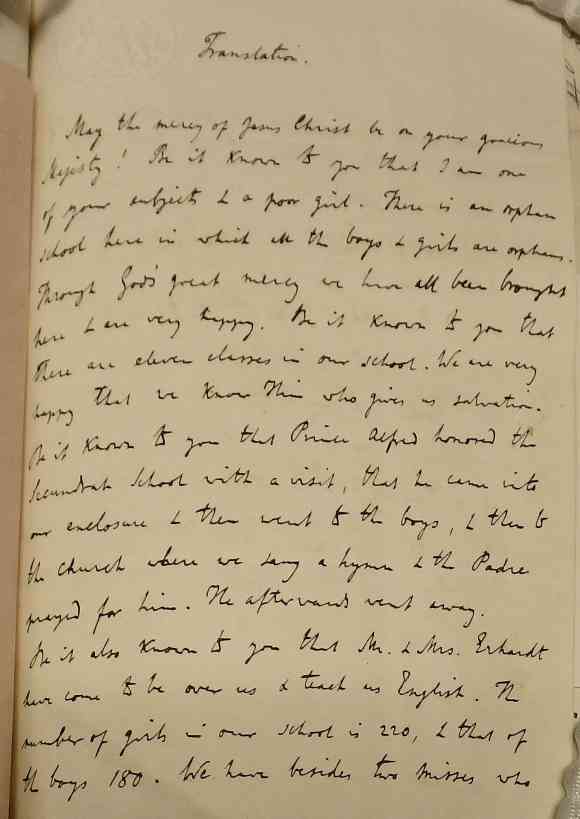 Translation.
May the mercy of Jesus Christ be on your gracious
Majesty! Be it known to you that I am one
of your subjects & a poor girl. There is an orphan
school here in which all the boys & girls are orphans.
Through God's great mercy we have all been brought
here & are very happy. Be it known to you that
there are eleven classes in our school. We are very
happy that we know Him who gives us salvation.
Be it known to you that Prince Alfred honored the
Secundrah School with a visit, that he came into
our enclosure & then went to the boys, & then to
the church where we sang a hymn & the Padre
prayed for him. He afterwards went away.
Be it also known to you that Mr. & Mrs. Erhardt
have come to be over us & teach us English. The
number of girls in our school is 220, & that of
the boys 180. We have besides two Misses who